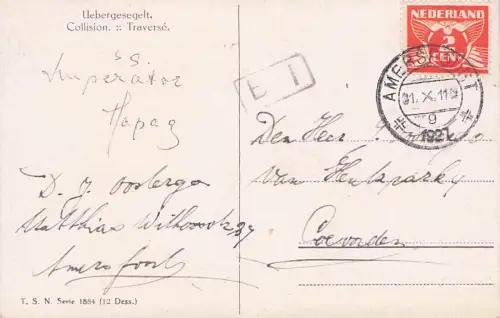 Uebergesegelt.
Collision. :: Traversé.
S.S.
Imperator
Hapag
D. J. Oosterga
Matthias Withoosstr 37
Amersfoort
T. S. N. Serie 1884 (12 Dess.)
NEDERLAND
2
CENT
AMERSFOORT
31. X. 11
9
192
Den Heer
van
Coevorden